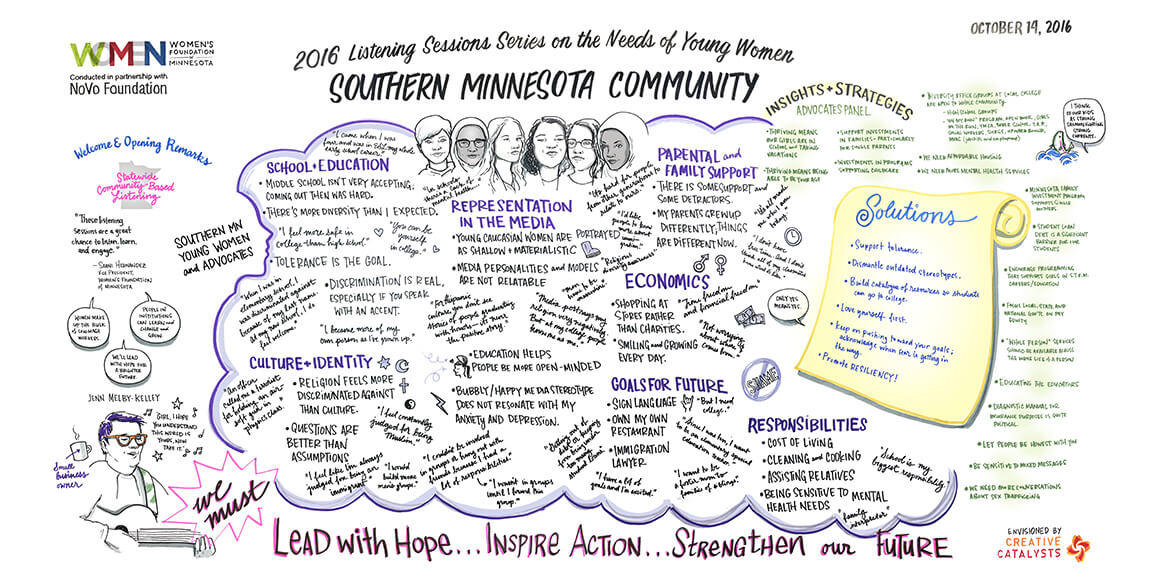 WOMEN
WOMEN'S
FOUNDATION
of
MINNESOTA
Conducted in partnership with
NoVo Foundation
2016 Listening Sessions Series on the Needs of Young Women
SOUTHERN MINNESOTA COMMUNITY
OCTOBER 14, 2016
Welcome & Opening Remarks
Statewide
Community-Based
Listening
"These listening
sessions are a great
chance to listen, learn,
and engage."
VICE PRESIDENT,
WOMEN'S FOUNDATION
OF MINNESOTA
WOMEN MAKE UP
THE BULK
OF LOW-WAGE
WORKERS
PEOPLE IN
INSTITUTIONS
CAN LEARN AND
CHANGE AND
GROW.
WE'LL LEAD
WITH HOPE FOR
A BRIGHTER
FUTURE.
JENN MELBY-KELLEY
"GIRL, I HOPE
YOU UNDERSTAND
THIS WORLD IS
YOURS, NOW
TAKE IT."
Small
Business
owner
we
must
SOUTHERN MN
YOUNG WOMEN
and ADVOCATES
SCHOOL + EDUCATION
"I came when I was
five and was in ESL my whole
early school career."
• MIDDLE SCHOOL ISN'T VERY ACCEPTING.
COMING OUT THEN WAS HARD.
• THERE'S MORE DIVERSITY THAN I EXPECTED.
"I feel more safe in
college than high school."
"You can be
yourself
in college."
• TOLERANCE IS THE GOAL.
"When I was in
elementary school,
I was discriminated against
because of my last name.
At my new school, I do
feel welcome."
• DISCRIMINATION IS REAL,
ESPECIALLY IF YOU SPEAK
WITH AN ACCENT.
"I became more of my
own person as I've grown up."
CULTURE + IDENTITY
"An officer
called me a terrorist
for holding an air
soft gun in
physics class."
• RELIGION FEELS MORE
DISCRIMINATED AGAINST
THAN CULTURE.
• QUESTIONS ARE
BETTER THAN
ASSUMPTIONS
"I feel community
judged for being
Muslim."
"I feel like I'm always
judged for being an
immigrant."
"In schools,
there's a lack of
mental health."
REPRESENTATION
IN THE MEDIA
• YOUNG CAUCASIAN WOMEN ARE PORTRAYED
AS SHALLOW + MATERIALISTIC
• MEDIA PERSONALITIES AND MODELS
ARE NOT RELATABLE
"For hispanic
culture, you don't see
stories of people graduating
with honors—it's never
the positive story."
"Media portrays my
religion very negatively.
But at my college, people
know me as me."
• EDUCATION HELPS
PEOPLE BE MORE OPEN-MINDED
• BUBBLY/HAPPY MEDIA STEREOTYPE
DOES NOT RESONATE WITH MY
ANXIETY AND DEPRESSION.
"I couldn't be involved
in groups or hang out with
friends because I had a
lot of responsibilities."
"I wasn't in groups
until I found this
group."
PARENTAL and
FAMILY SUPPORT
• THERE IS SOME SUPPORT and
SOME DETRACTORS.
• MY PARENTS GREW UP
DIFFERENTLY, THINGS
ARE DIFFERENT NOW.
ECONOMICS
• SHOPPING AT
STORES RATHER
THAN CHARITIES.
• SMILING and GROWING
EVERY DAY.
"Time freedom
and financial freedom"
"Not worrying
about where $
comes from."
ONLY YES
MEANS YES.
GOALS FOR FUTURE
• SIGN LANGUAGE
• OWN MY OWN
RESTAURANT
• IMMIGRATION
LAWYER
"But I need
college."
"I have a lot of
goals and I'm excited."
SHAME
RESPONSIBILITIES
• COST OF LIVING
• CLEANING and COOKING
• ASSISTING RELATIVES
• BEING SENSITIVE TO MENTAL
HEALTH NEEDS
"family
interpreter"
"School is my
biggest responsibility."
INSIGHTS + STRATEGIES
ADVOCATES PANEL
• THRIVING MEANS
OUR GIRLS ARE IN
SCHOOL and TAKING
VACATIONS
• THRIVING MEANS BEING
ABLE TO BE YOUR AGE
• SUPPORT INVESTMENTS
IN FAMILIES—PARTICULARLY
FOR SINGLE PARENTS
• INVESTMENTS IN PROGRAMS
SUPPORTING CHILDCARE
• DIVERSITY OFFICE GROUPS AT LOCAL COLLEGE
ARE OPEN TO WHOLE COMMUNITY.
• WE NEED AFFORDABLE HOUSING
• WE NEED MORE MENTAL HEALTH SERVICES
I THINK
OF OUR KIDS
AS STRONG
SALMON FIGHTING
STRONG
CURRENTS.
Solutions
• Support tolerance.
• Dismantle outdated stereotypes.
• Build catalogue of resources so students
can go to college.
• Love yourself first.
• Keep on pushing toward your goals;
acknowledge when fear is getting in
the way.
• Promote RESILIENCY!
• MINNESOTA FAMILY
INVESTMENT PROGRAM
SUPPORTS SINGLE
MOTHERS
• STUDENT LOAN
DEBT IS A SIGNIFICANT
BARRIER FOR OUR
STUDENTS
• ENCOURAGE PROGRAMMING
THAT SUPPORTS GIRLS IN S.T.E.M.
CAREERS/EDUCATION
• FOCUS LOCAL, STATE, AND
NATIONAL GOV'T. ON PAY
EQUITY
• "WHOLE PERSON" SERVICES
SHOULD BE AVAILABLE ACROSS
THE WHOLE LIFE OF A PERSON
• EDUCATING THE EDUCATORS
• DIAGNOSTIC MANUAL FOR
INSURANCE PURPOSES IS QUITE
POLITICAL.
• LET PEOPLE BE HONEST WITH YOU
• BE SENSITIVE TO MIXED MESSAGES
• WE NEED MORE CONVERSATIONS
ABOUT SEX TRAFFICKING
LEAD WITH HOPE... INSPIRE ACTION... STRENGTHEN our FUTURE
ENVISIONED BY
CREATIVE
CATALYSTS